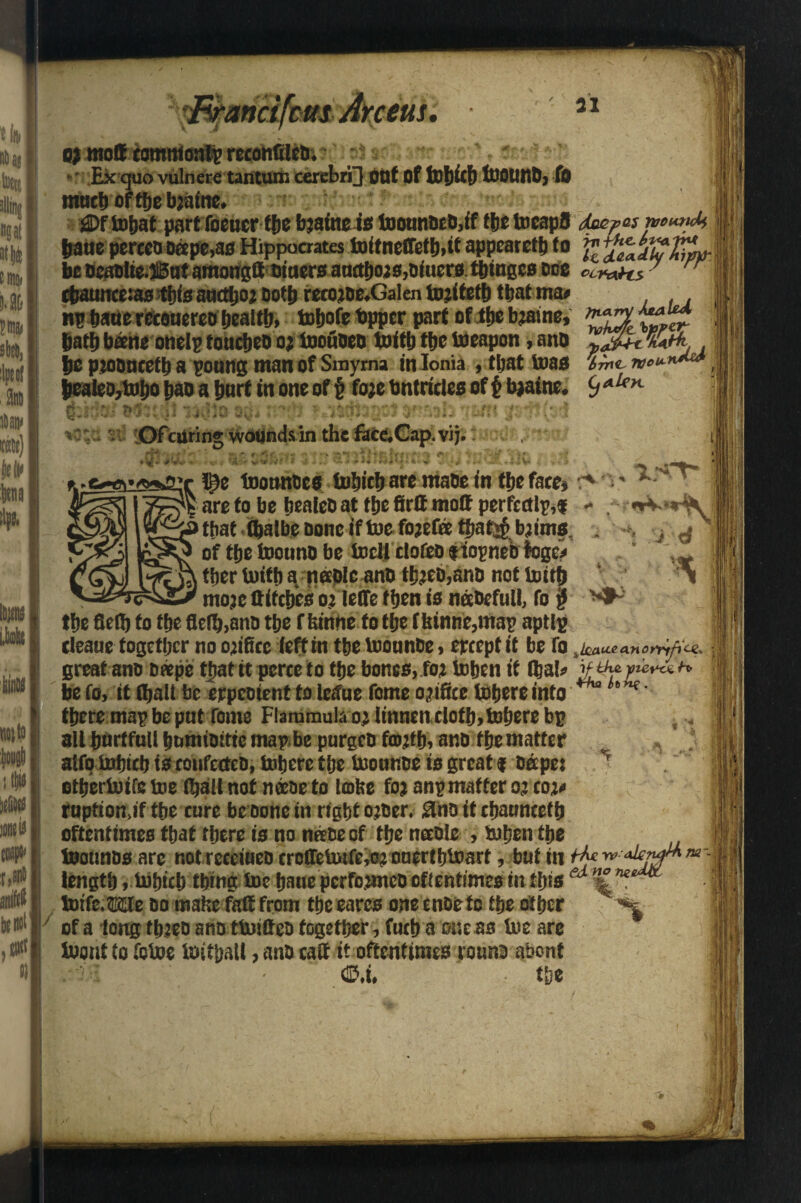 Franciscus Arceus. 21
oꝛ most commonly reconsiled.
Ex quo vulnere tantum cerebri] out of which wound, so
much of the bꝛaine.
Of what part soeuer the bꝛaine is wounded, if the weapõ
haue perced déepe, as Hippocrates witnesseth, it appeareth to
be deadlie. But amongst diuers aucthoꝛs, diuers thinges doe
chaunce: as this aucthoꝛ doth recoꝛde. Galen wꝛiteth that ma⸗
ny haue recouered health, whose vpper part of the bꝛaine,
hath béene onely touched oꝛ woũded with the weapon, and
he pꝛoduceth a young man of Smyrna in Ionia, that was
healed, who had a hurt in one of ye foꝛe ventricles of ye bꝛaine.
deepas wounds
in the brayne
is deadly hipp-
ocrates
many healed
whose vpper
part hath
bene wounded
Galen
Of curing wounds in the face. Cap. vij.
The woundes which are made in the face,
are to be healed at the first most perfectly, &
that shalbe done if we foꝛesée that ye bꝛims
of the wound be well closed & ioyned toge⸗
ther with a néedle and thꝛed, and not with
moꝛe stitches oꝛ lesse then is néedefull, so ye
the flesh to the flesh, and the skinne to the skinne, may aptly
cleaue together no oꝛifice left in the wounde, except it be so
great and déepe that it perce to the bones, foꝛ when it shal⸗
be so, it shall be expedient to leaue some oꝛifice where into
there may be put some Flammula oꝛ linnen cloth, where by
all hurtfull humiditie may be purged fooꝛth, and the matter
also which is confected, where the wounde is great & déepe:
otherwise we shall not néede to looke foꝛ any matter oꝛ coꝛ⸗
ruption, if the cure be done in right oꝛder. And it chaunceth
oftentimes that there is no néede of the néedle, when the
wounds are not receiued crossewise, oꝛ ouerthwart, but in
length, which thing we haue perfoꝛmed oftentimes in this
wise. We do make fast from the eares one ende to the other
of a long thꝛed and twisted together, such a one as we are
wont to sowe withall, and cast it oftentimes round about
leaue an orryfice
if the pierce to
the bone.
the w-alength ne-
ed no needle
D.i. the